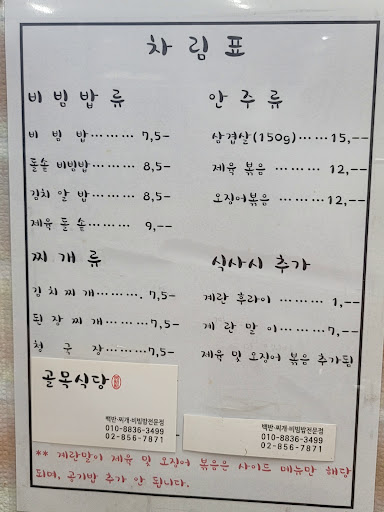 차림표
비빔밥류
비 빔 밥 ……… 7,5-
돌솥 비빔밥 ……… 8,5-
김치 알 밥 ……… 8,5-
제육 돌 솥 …… 9,--
찌개류
김 치 찌 개 ……… 7,5-
된 장 찌 개 ……… 7,5-
청 국 장 ……… 7,5-
안주류
삼겹살(150g) …… 15,--
제육 볶음 …… 12,--
오징어볶음 ……… 12,--
식사시 추가
계란 후라이 ……… 1,--
계 란 말 이 ……… 7,--
제육 및 오징어 볶음 추가됨
골목식당
백반·찌개·비빔밥전문점
010-8836-3499
02-856-7871
백반·찌개·비빔밥전문점
010-8836-3499
02-856-7871
** 계란말이 제육 및 오징어 볶음은 사이드 메뉴만 해당
되며, 공기밥 추가 안 됩니다.